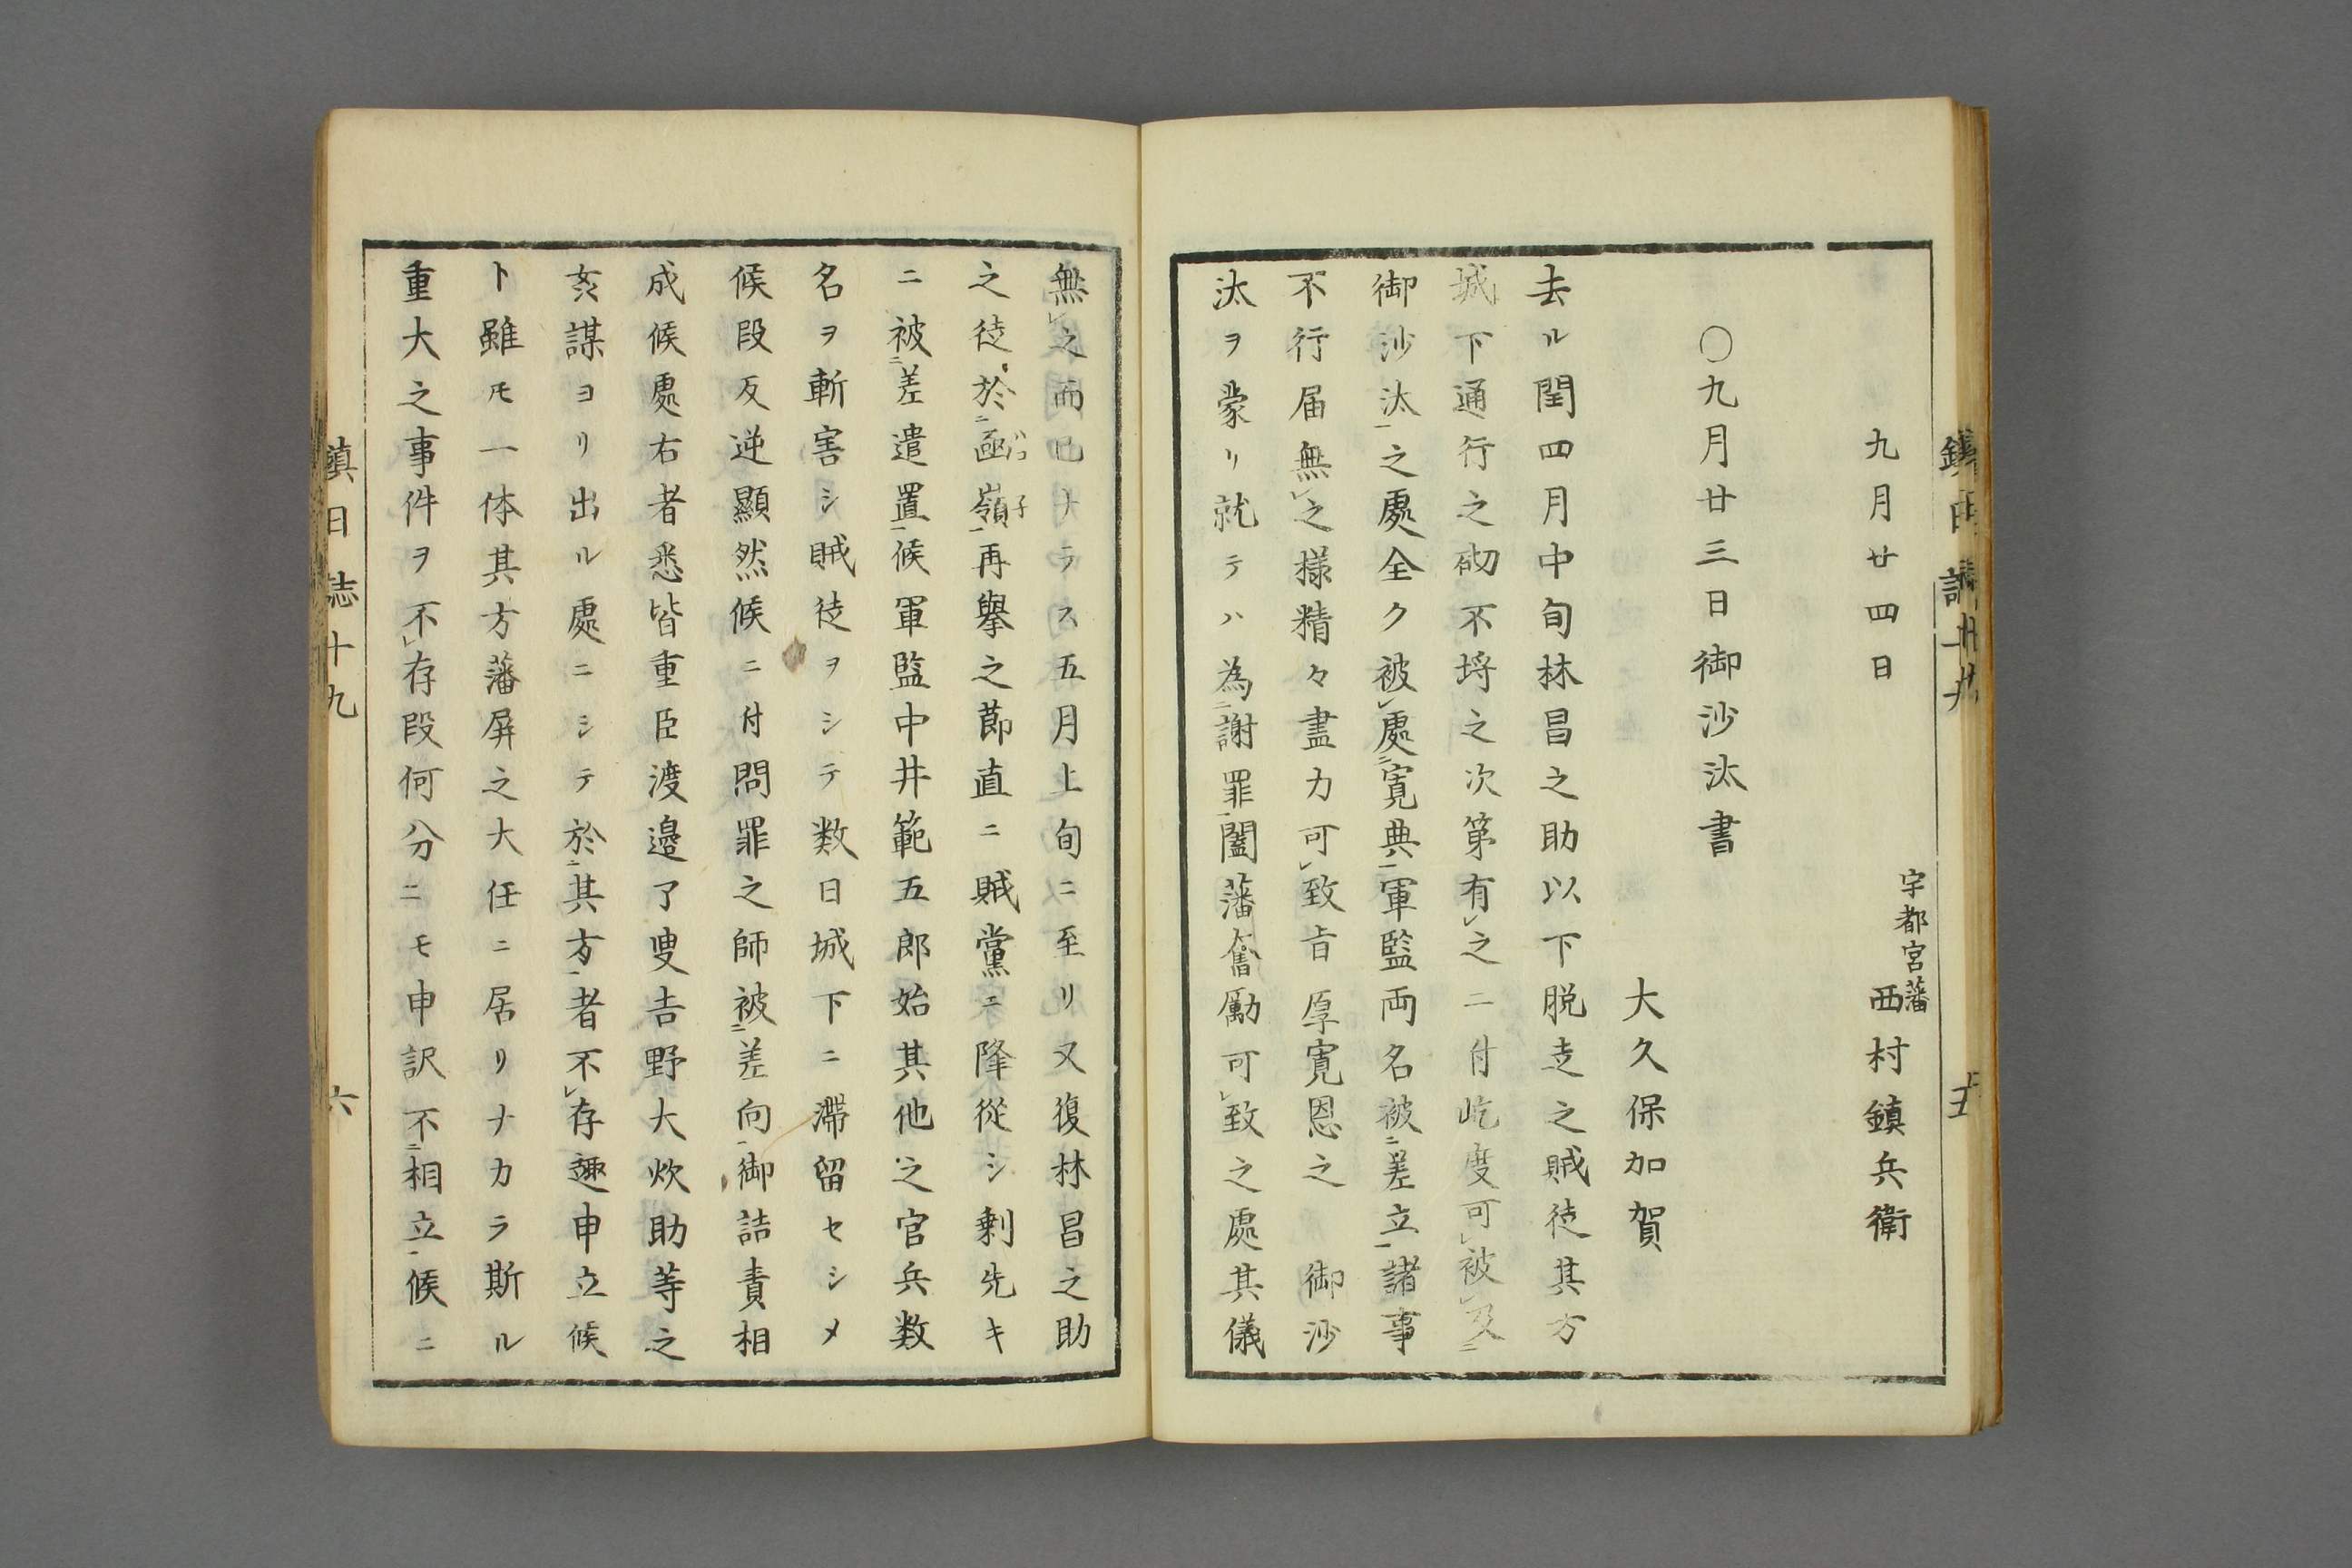 九月廿四日
宇都宮藩
西村鎮兵衛
〇九月廿三日御沙汰書
大久保加賀
去ル閏四月中旬林昌之助以下脱走之賊徒其方
城下通行之砌不埓之次第有㆑之ニ付屹度可㆑被㆑及㆓
御沙汰㆒之處全ク被㆑處㆓寛典㆒軍監両名被㆓差立㆒諸事
不行届無㆑之様精々盡力可㆑致旨厚寛恩之　御沙
汰ヲ蒙リ就テハ為㆓謝罪㆒闔藩奮勵可㆑致之處其儀
無㆑之而已ナラス五月上旬ニ至リ又復林昌之助
之徒於㆓凾嶺㆒再擧之節直ニ賊黨ニ降從シ剰先キ
ハコ子
ニ被㆓差遣置㆒候軍監中井範五郎始其他之官兵数
名ヲ斬害シ賊徒ヲシテ数日城下ニ滞留セシメ
候段反逆顯然候ニ付問罪之師被㆓差向㆒御詰責相
成候處右者悉皆重臣渡邉了叟吉野大炊助等之
姦謀ヨリ出ル處ニシテ於㆓其方㆒者不㆑存趣申立候
ト雖モ一体其方藩屏之大任ニ居リナカラ斯ル
重大之事件ヲ不㆑存段何分ニモ申訳不㆓相立㆒候ニ
鎮日誌十九
六